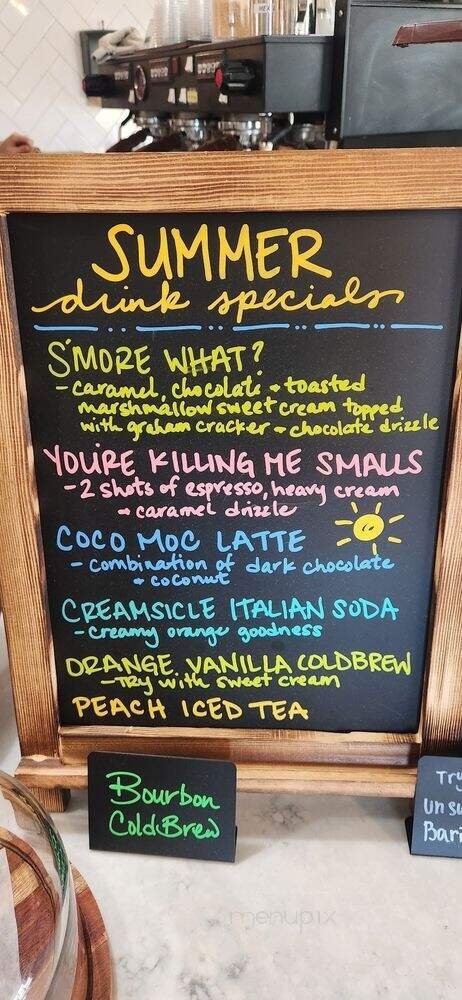 SUMMER
drink specials
S'MORE WHAT?
- caramel, chocolate + toasted
marshmallow sweet cream topped
with graham cracker + chocolate drizzle
YOU'RE KILLING ME SMALLS
- 2 shots of espresso, heavy cream
+ caramel drizzle
COCO MOC LATTE
- combination of dark chocolate
+ coconut
CREAMSICLE ITALIAN SODA
- creamy orange goodness
ORANGE VANILLA COLDBREW
- TRY with sweet cream
PEACH ICED TEA
Bourbon
ColdBrew
Try
un su
Bari
menupix